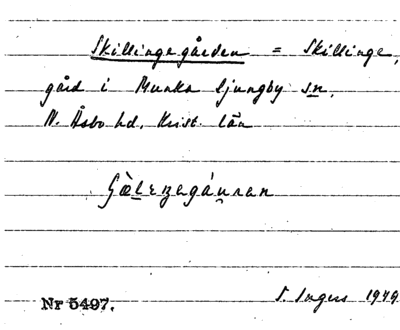 Skillingegården = Skillinge,
gård i Munka Ljungby sn,
N. Åsbo hd, Krist. län
S. Ingers 1949
Nr 5497.